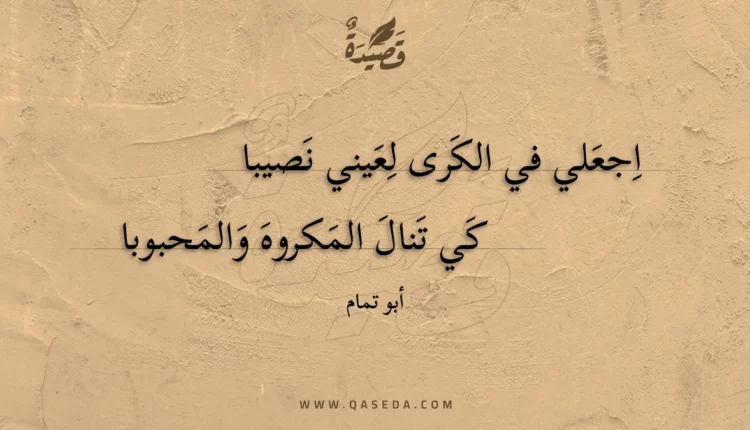 قَصِيدَةٌ
اِجعَلي في الكَرى لِعَيني نَصيبا
كَي تَنالَ المَكروهَ وَالمَحبوبا
أبو تمام
WWW.QASEDA.COM